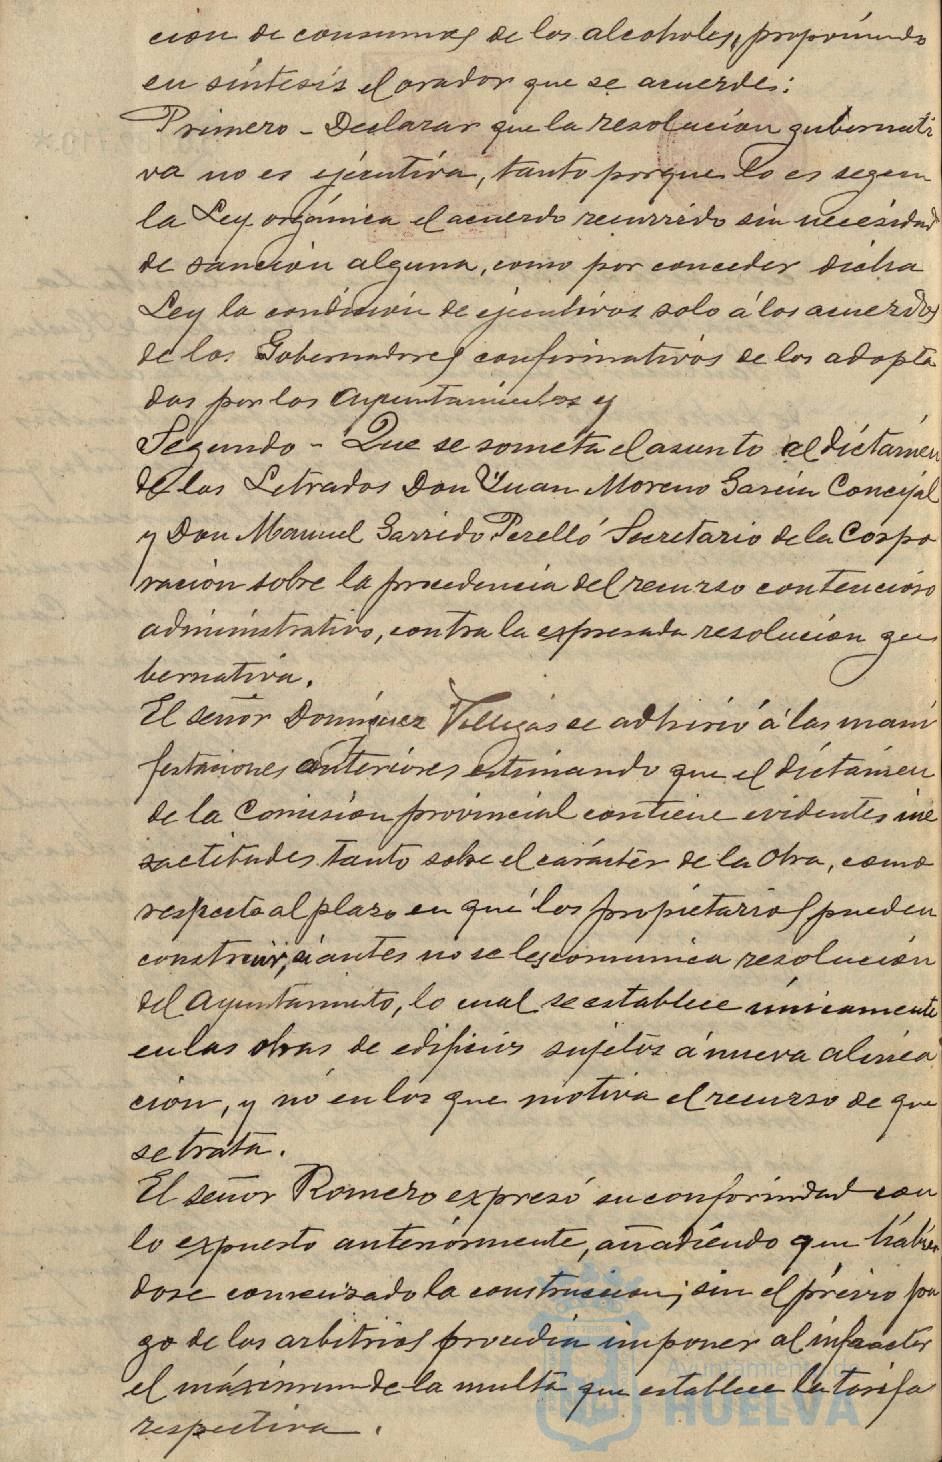 cion de consumos de los alcoholes, proponiendo
en síntesis el orador que se acuerde:
Primero - Declarar que la resolución gubernati
va no es ejecutiva, tanto porque lo es segun
la Ley orgánica el acuerdo recurrido sin necesidad
de sanción alguna, como por conceder dicha
Ley la condición de ejecutivos solo á los acuerdos
de los Gobernadores confirmativos de los adopta
dos por los Ayuntamientos y
Segundo - Que se someta el asunto al dictámen
de los Letrados Don Juan Moreno García Concejal
y Don Manuel Garrido Perelló Secretario de la Corpo
ración sobre la procedencia del recurso contencioso
administrativo, contra la expresada resolución gu
bernativa.
El señor Domínguez Villegas se adhirió á las mani
festaciones anteriores estimando que el dictámen
de la Comisión provincial contiene evidentes ine
xactitudes tanto sobre el carácter de la obra, como
respecto al plazo en que los propietarios pueden
construir, si antes no se les comunica resolución
del Ayuntamiento, lo cual se establece únicamente
en las obras de edificios sujetos á nueva alinea
ción, y nó en los que motiva el recurso de que
se trata.
El señor Romero expresó su conformidad con
lo expuesto anteriormente, añadiendo que habien
dose comenzado la construccion, sin el prévio pa
go de los arbitrios procedia imponer al infractor
el máximum de la multa que establece la tarifa
respectiva.
Ayuntamiento de
HUELVA